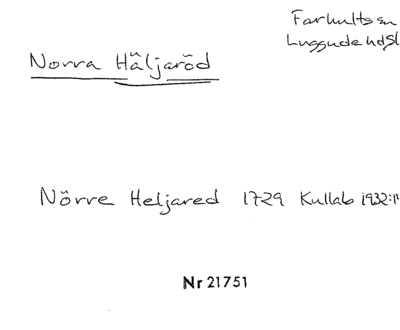 Farhults sn
Luggude hd Sk
Norra Häljaröd
Nörre Heljared 1729 Kullab 1932:14
Nr 21751